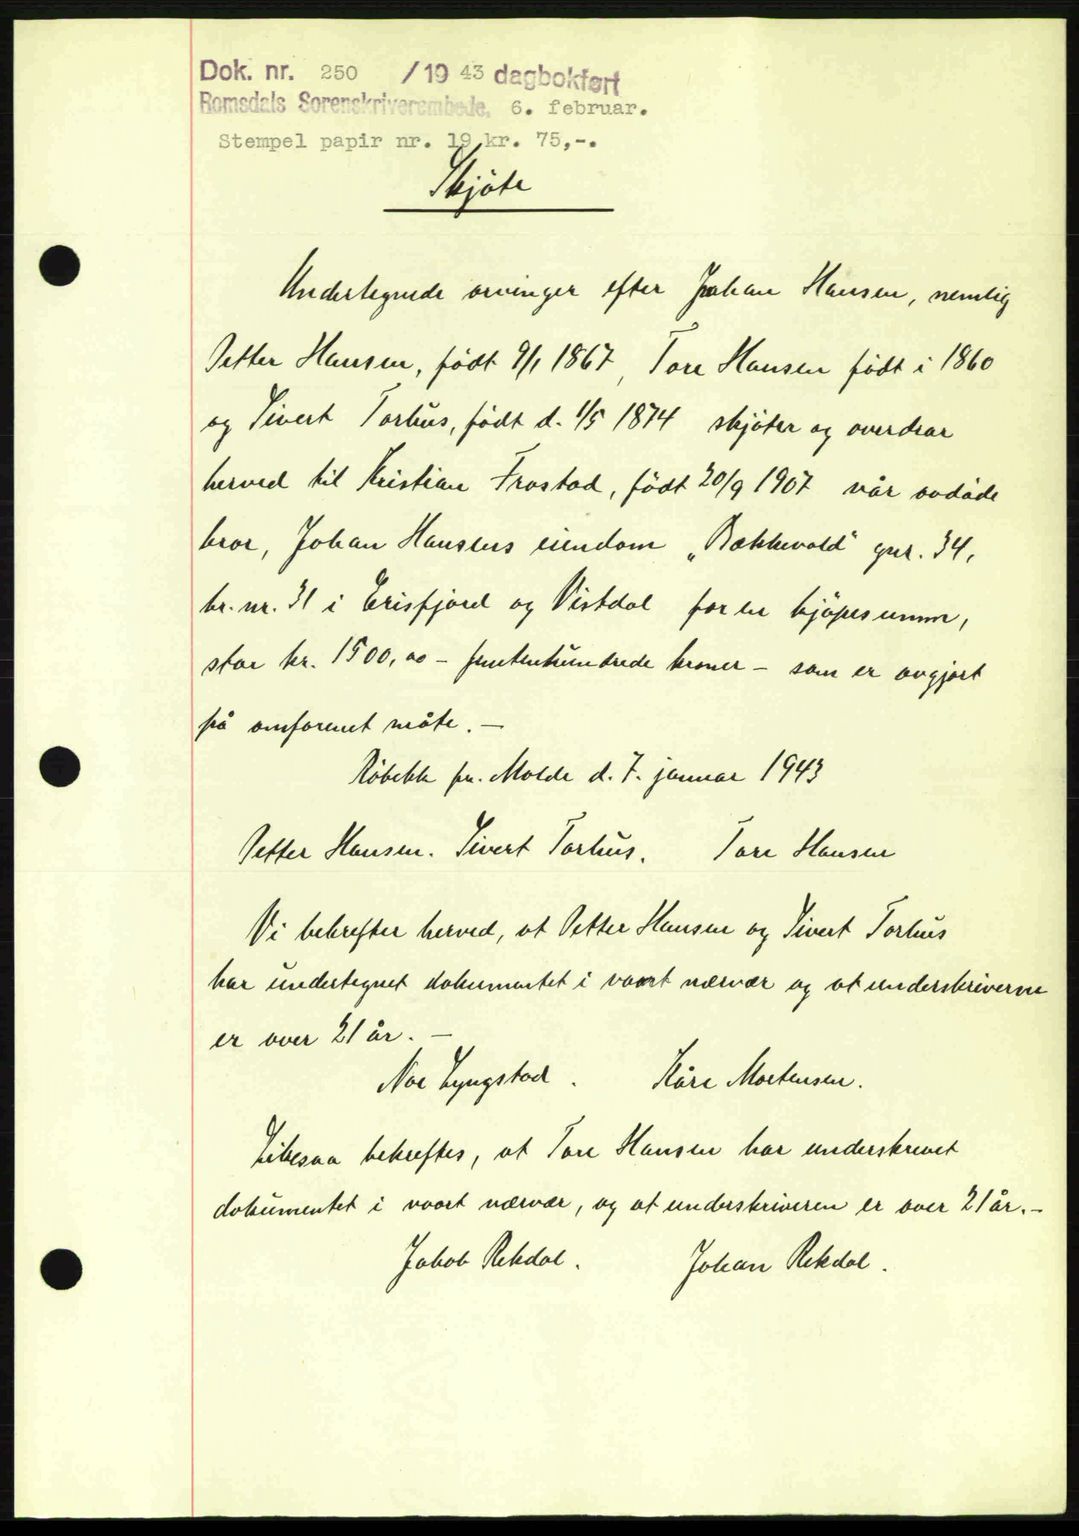 Dok. nr. 250 /19 43 dagbokført
Romsdals Sorenskriverembede. 6. februar.
Stempel papir nr. 19 kr. 75,-.
Skjøte
Undertegnede arvinger efter Johan Hansen, nemlig
Petter Hansen, født 9/1 1867, Tore Hansen født i 1860
og Sivert Torhus, født d. 1/5 1874 skjøter og overdrar
herved til Kristian Frostad, født 20/9 1907 vår avdøde
bror, Johan Hansens eiendom „Bækkevold" gnr. 34,
br. nr. 31 i Erisfjord og Vistdal for en kjøpesumm,
stor kr. 1500,00 - femtenhundrede kroner - som er avgjort
på omforenet måte. -
Røbekk pr. Molde d. 7. januar 1943
Petter Hansen. Sivert Torhus. Tore Hansen
Vi bekrefter herved, at Petter Hansen og Sivert Torhus
har undertegnet dokumentet i vaart nærvær og at underskriverne
er over 21 år. -
Noe Lyngstad. Kåre Mortensen.
Likesaa bekreftes, at Tore Hansen har underskrevet
dokumentet i vaart nærvær, og at underskriveren er over 21 år. -
Jakob Rekdal. Johan Rekdal.